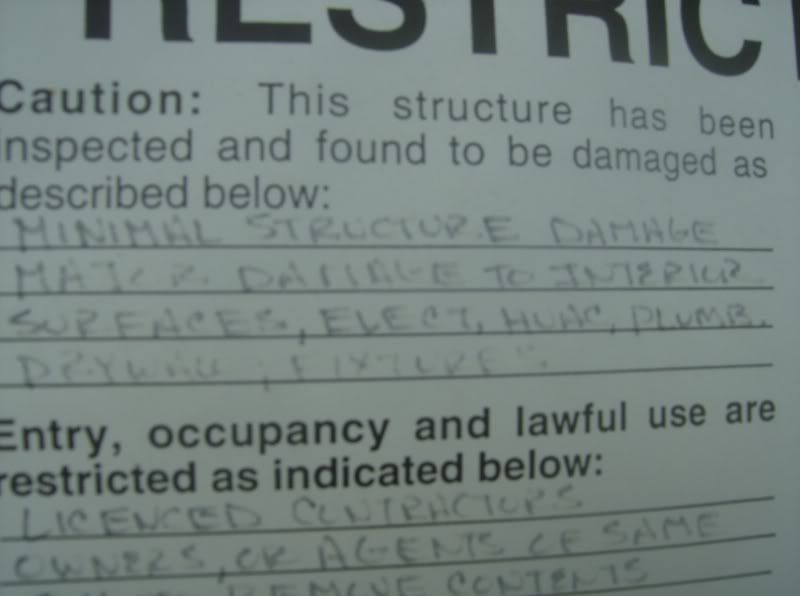 RESTRICT
Caution: This structure has been
inspected and found to be damaged as
described below:
MINIMAL STRUCTURE DAMAGE
MAJOR DAMAGE TO INTERIOR
SURFACES, ELECT, HVAC, PLUMB.
DRYWALL, FIXTURE
Entry, occupancy and lawful use are
restricted as indicated below:
LICENCED CONTRACTORS
OWNERS, OR AGENTS OF SAME
REMOVE CONTENTS